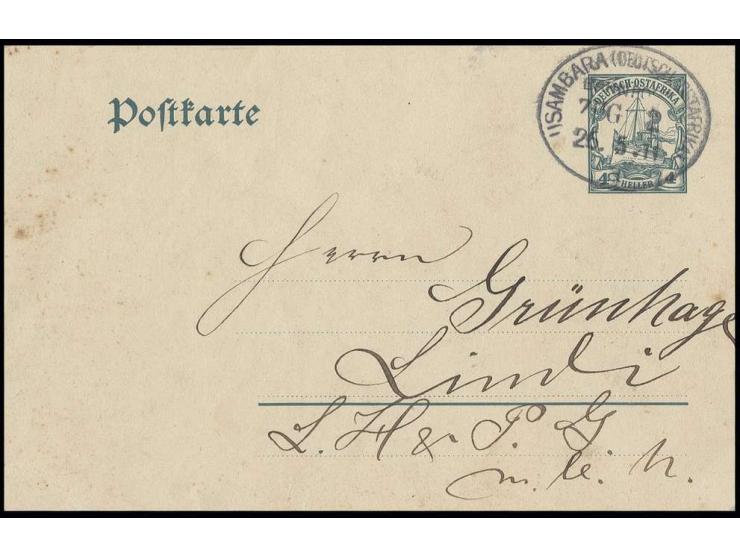 USAMBARA (DEUTSCH-OSTAFRIKA)
ZUG 2
26. 5. 11
DEUTSCH-OSTAFRIKA
4 HELLER 4
Poſtkarte
Herrn
Grünhage
Lindi
L. H & P. G
m. b. H.